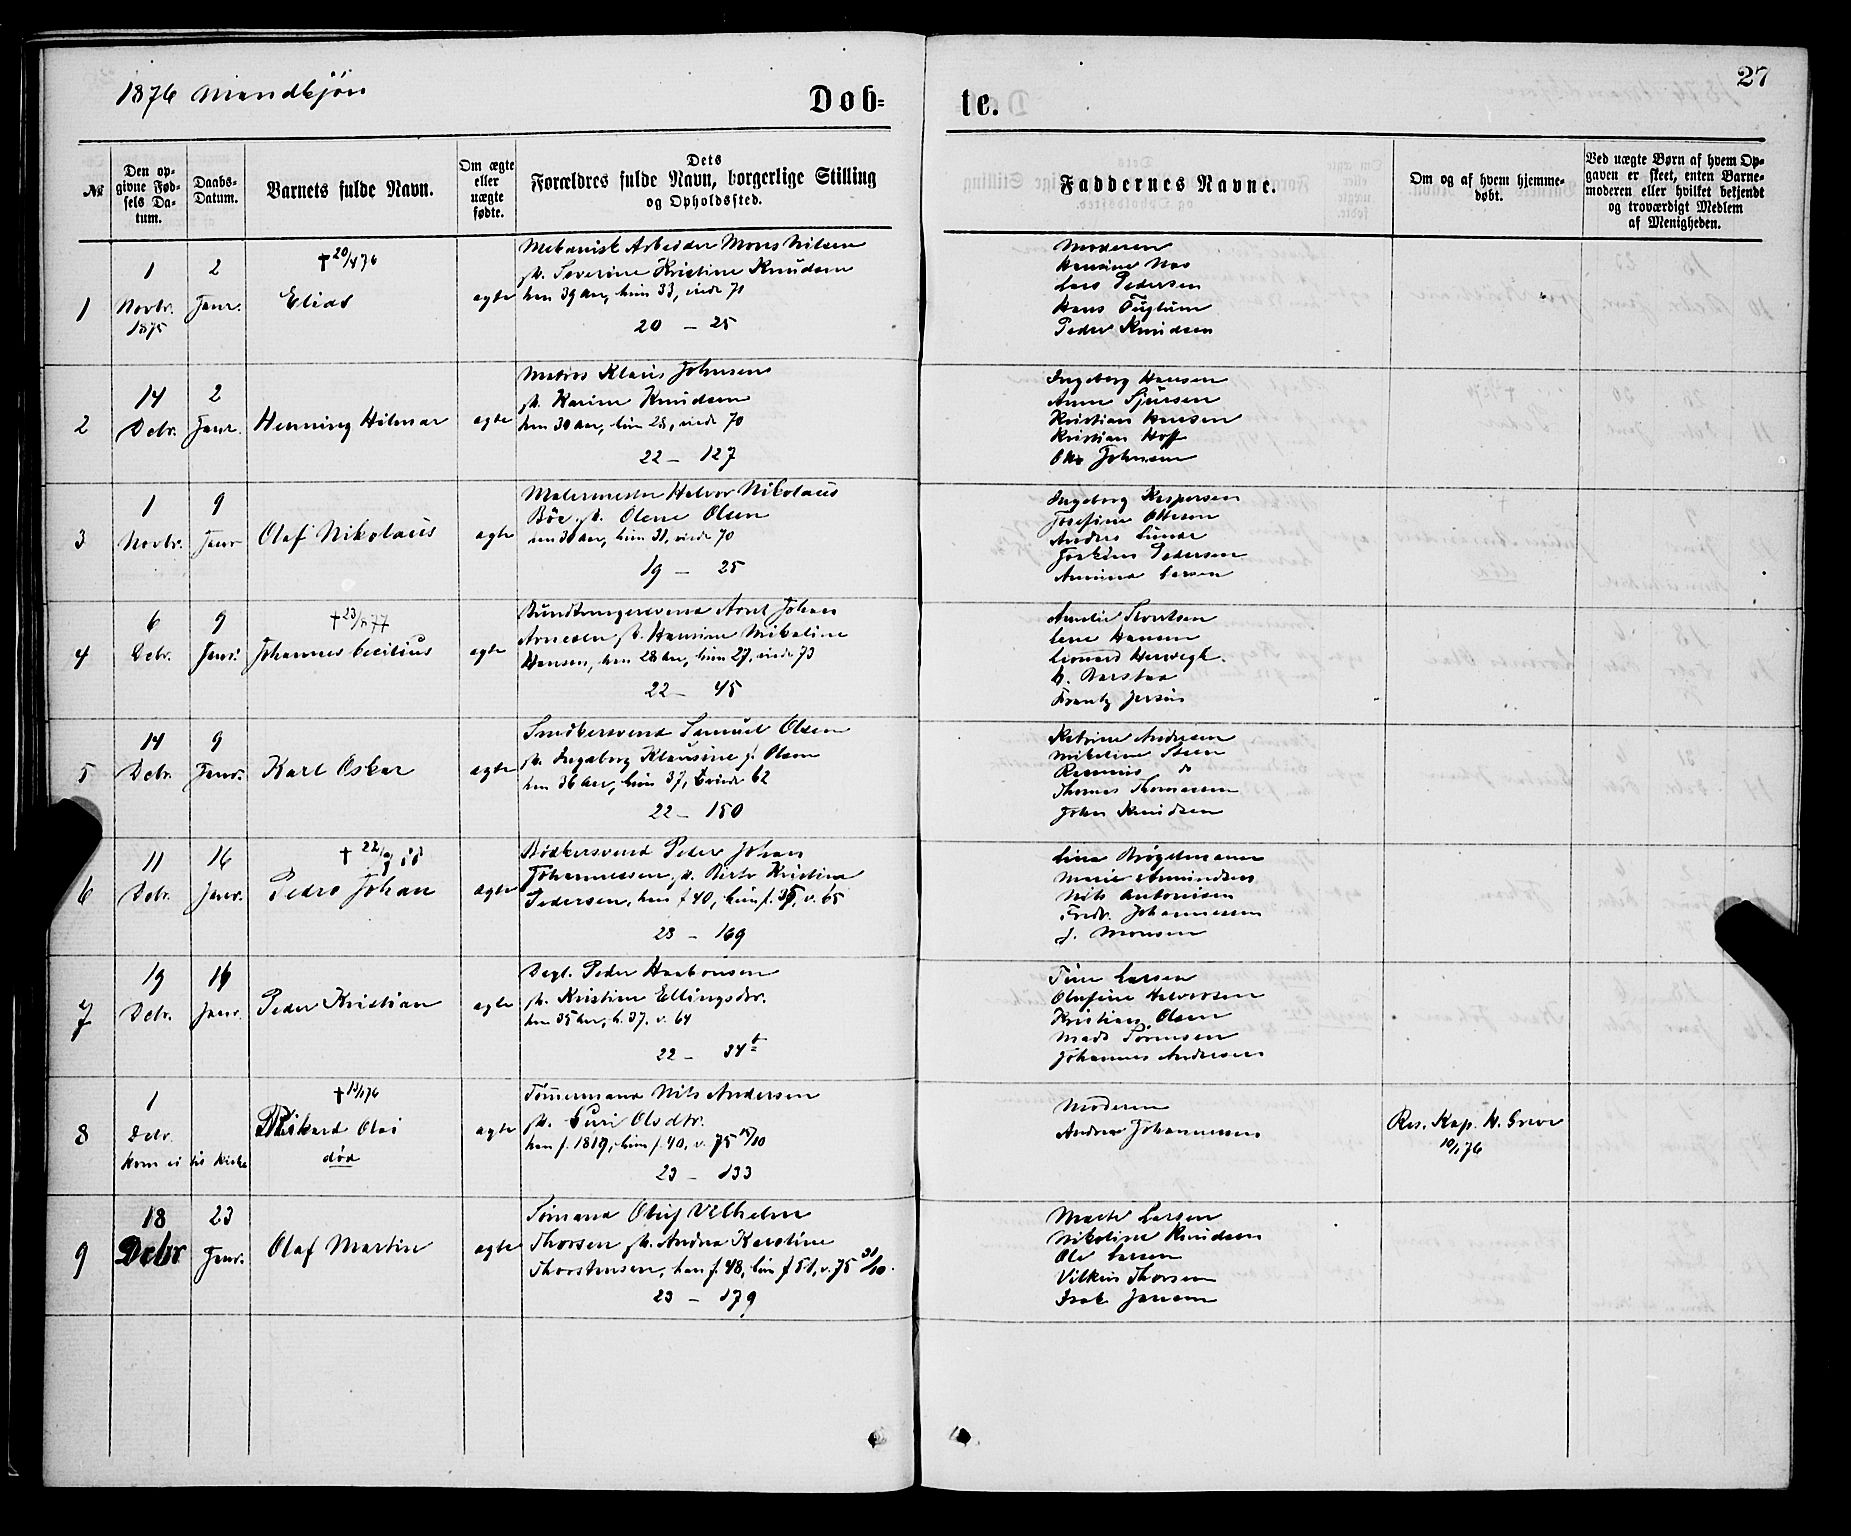 1876 Mandkjön
Döb=
te.
27
№
Den op-
givne Fød-
sels Da-
tum.
Daabs-
Datum.
Barnets fulde Navn.
Om ægte
eller
uægte
fødte.
Dets
Forældres fulde Navn, borgerlige Stilling
og Opholdssted.
Faddernes Navne.
Om og af hvem hjemme-
døbt.
Ved uægte Børn af hvem Op-
gaven er skeet, enten Barne-
moderen eller hvilket bekjendt
og troværdigt Medlem
af Menigheden.
1
1
Novbr.
1875
2
Janr.
Elias
ægte
Mekanisk Arbeider Mons Nilsen
Severine Kristine Knudsen
han 39 Aar, hun 33, viede 71
20 — 25
Moderen
Lars Pedersen
Hans Fuglum
Peder Knudsen
2
14
Debr.
2
Janr.
Henning Hilmar
ægte
Matros Klaus Johnsen
Karine Knudsen
han 30 Aar, hun 28, viede 70
22 — 127
Ingeborg Hansen
Anne Sjursen
Kristian Hansen
Kristian Hoff
Johnsen
3
1
Novbr.
9
Janr
Olaf Nikolaus
ægte
Malermester Halvor Nikolaus
Böe Olene Olsen
han 30 Aar, hun 31, viede 70
19 — 25
Ingeborg Kaspersen
Josefine Olsen
Anders Lunde
Joakim Pedersen
Larsen
4
6
Debr.
9
Janr.
Johannes Cecilius
ægte
Johan
Arnesen Hansine Mikaline
Hansen, han 28 Aar, hun 27, viede 73
22 — 45
Amalie
Lene Hansen
Leonard Herwegh.
Frantz
5
14
Debr.
9
Janr.
Karl Oskar
ægte
Snedkersvend Samuel Olsen
Ingeborg Klausine f. Olsen
han 36 Aar, hun 37, viede 62
22 — 150
Katrine Andresen
Mikeline Steen
Rasmus do
Thomas Thomassen
Johan Knudsen
6
11
Debr.
16
Janr.
Pedro Johan
ægte
Bødkersvend Peder Johan
Johannessen, Berte Kristine
Pedersen, han f 40, hun f. 35, v. 65
23 — 169
Lina Brögelmann
Marie Amundsen
Nils Antonisen
Fredr. Johannessen
J. Monsen
7
19
Debr.
16
Janr.
Peder Kristian
ægte
Dagl. Peder Haakonsen
Kristine Ellingsdtr.
han 35 Aar, h. 37. v. 64
22 — 34 b
Tine Larsen
Olufine Halvorsen
Kristian Olsen
Mads Sörensen
Johannes Andersen
8
1
Debr.
Kom ei til Kirke
Rikard Olai
död
ægte
Tömmermand Nils Andersen
Guri Olsdtr.
han f. 1819, hun f. 40, v. 75
23 — 133
Moderen
Andreas Johannessen
Res. Kap. N. Greve
10/1 76
9
18
Debr
23
Janr.
Olaf Martin
ægte
Sömand Oluf Vilhelm
Thorsen Andrea Karoline
Thorstensen, han f. 48, hun f 51, v. 75 31/10.
23 — 179
Marte Larsen
Nikoline Knudsen
Ole Larsen
Vilkens Thorsen
Isak Jansen